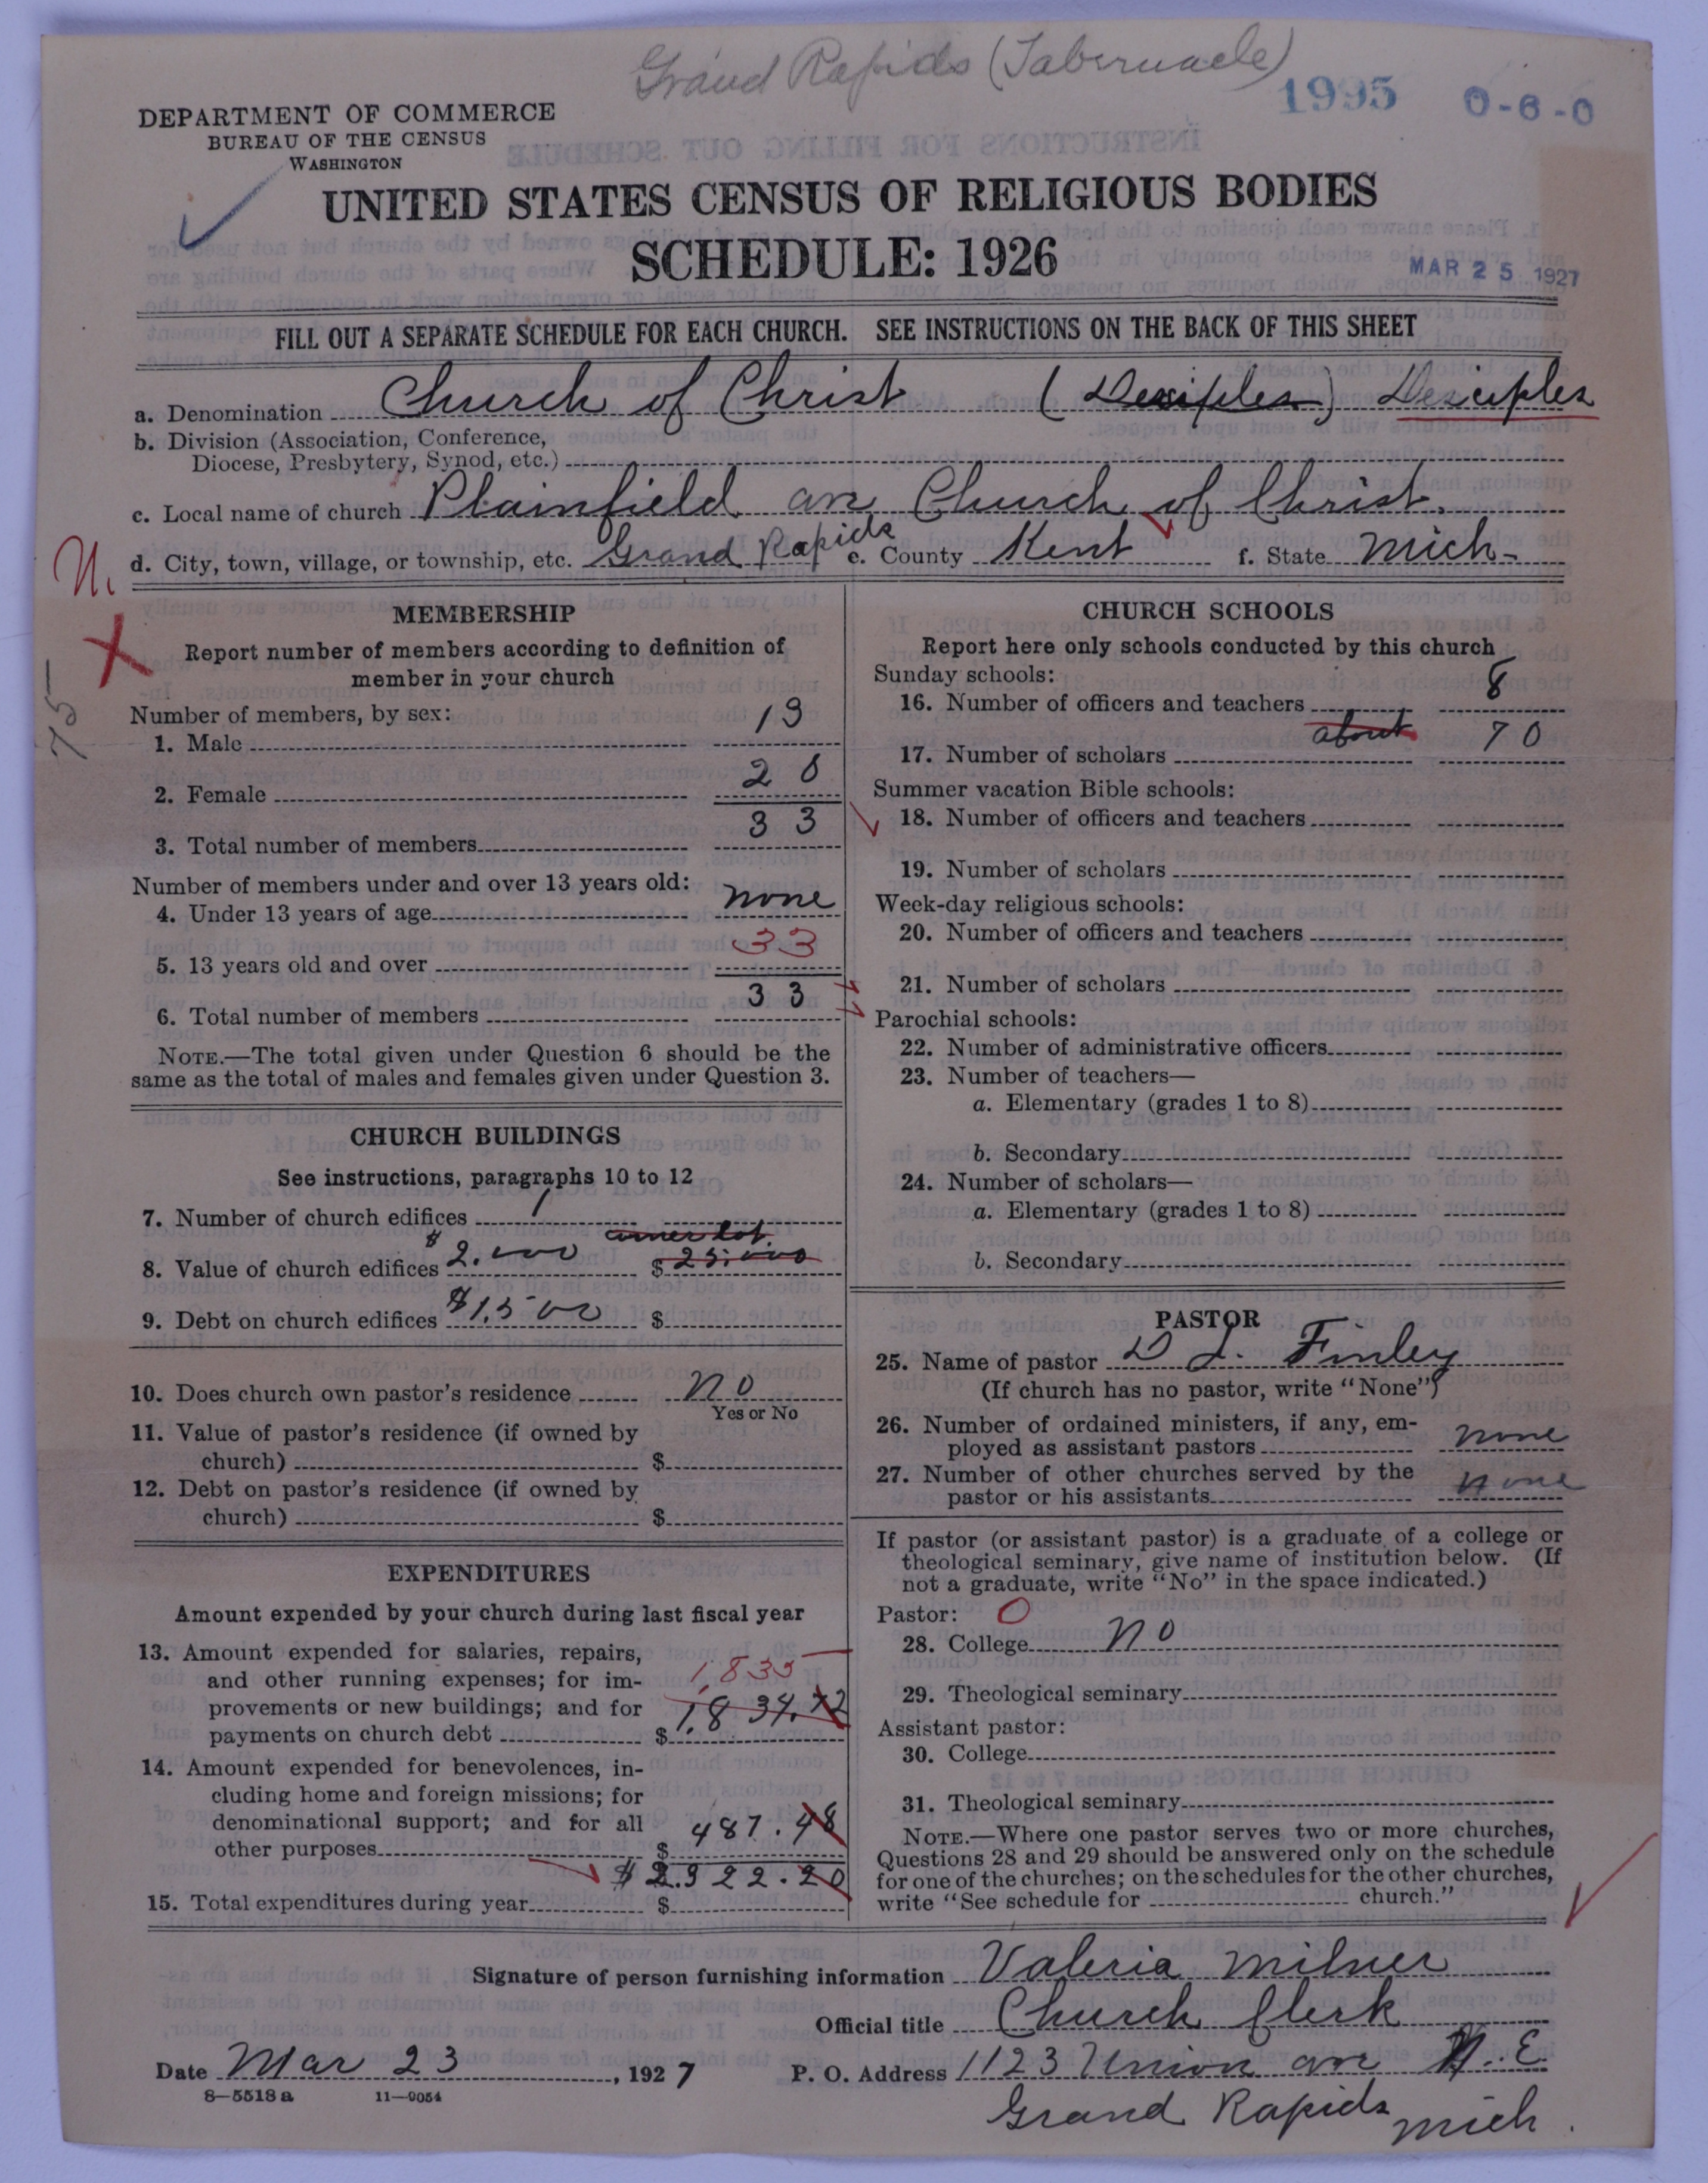 Grand Rapids (Tabernacle)
1995 0-6-0
DEPARTMENT OF COMMERCE
BUREAU OF THE CENSUS
WASHINGTON
UNITED STATES CENSUS OF RELIGIOUS BODIES
SCHEDULE: 1926
MAR 25 1927
FILL OUT A SEPARATE SCHEDULE FOR EACH CHURCH. SEE INSTRUCTIONS ON THE BACK OF THIS SHEET
a. Denomination Church of Christ (Desiples) Desciples
b. Division (Association, Conference,
Diocese, Presbytery, Synod, etc.)
c. Local name of church Plainfield ave Church of Christ.
d. City, town, village, or township, etc. Grand Rapids e. County Kent f. State Mich-
N.
X
75
MEMBERSHIP
Report number of members according to definition of
member in your church
Number of members, by sex:
1. Male 13
2. Female 20
3. Total number of members 33
Number of members under and over 13 years old:
4. Under 13 years of age none
5. 13 years old and over 33
6. Total number of members 33
NOTE.—The total given under Question 6 should be the
same as the total of males and females given under Question 3.
CHURCH BUILDINGS
See instructions, paragraphs 10 to 12
7. Number of church edifices 1
corner lot
8. Value of church edifices $2.000 $ 25.000
9. Debt on church edifices $1.500 $
10. Does church own pastor's residence no
Yes or No
11. Value of pastor's residence (if owned by
church) $
12. Debt on pastor's residence (if owned by
church) $
EXPENDITURES
Amount expended by your church during last fiscal year
13. Amount expended for salaries, repairs,
and other running expenses; for im-
provements or new buildings; and for
payments on church debt $
1,835
1.834.72
14. Amount expended for benevolences, in-
cluding home and foreign missions; for
denominational support; and for all
other purposes $ 487.48
$2.322.20
15. Total expenditures during year $
CHURCH SCHOOLS
Report here only schools conducted by this church
Sunday schools:
16. Number of officers and teachers 8
17. Number of scholars about 70
Summer vacation Bible schools:
18. Number of officers and teachers
19. Number of scholars
Week-day religious schools:
20. Number of officers and teachers
21. Number of scholars
Parochial schools:
22. Number of administrative officers
23. Number of teachers—
a. Elementary (grades 1 to 8)
b. Secondary
24. Number of scholars—
a. Elementary (grades 1 to 8)
b. Secondary
PASTOR
25. Name of pastor D L. Finley
(If church has no pastor, write "None")
26. Number of ordained ministers, if any, em-
ployed as assistant pastors none
27. Number of other churches served by the
pastor or his assistants none
If pastor (or assistant pastor) is a graduate of a college or
theological seminary, give name of institution below. (If
not a graduate, write "No" in the space indicated.)
Pastor: 0
28. College no
29. Theological seminary
Assistant pastor:
30. College
31. Theological seminary
NOTE.—Where one pastor serves two or more churches,
Questions 28 and 29 should be answered only on the schedule
for one of the churches; on the schedules for the other churches,
write "See schedule for church."
Signature of person furnishing information Valeria Milner
Official title Church Clerk
Date Mar 23, 1927 P. O. Address 1123 Union ave N.E.
Grand Rapids Mich.
8—5518a 11—9054